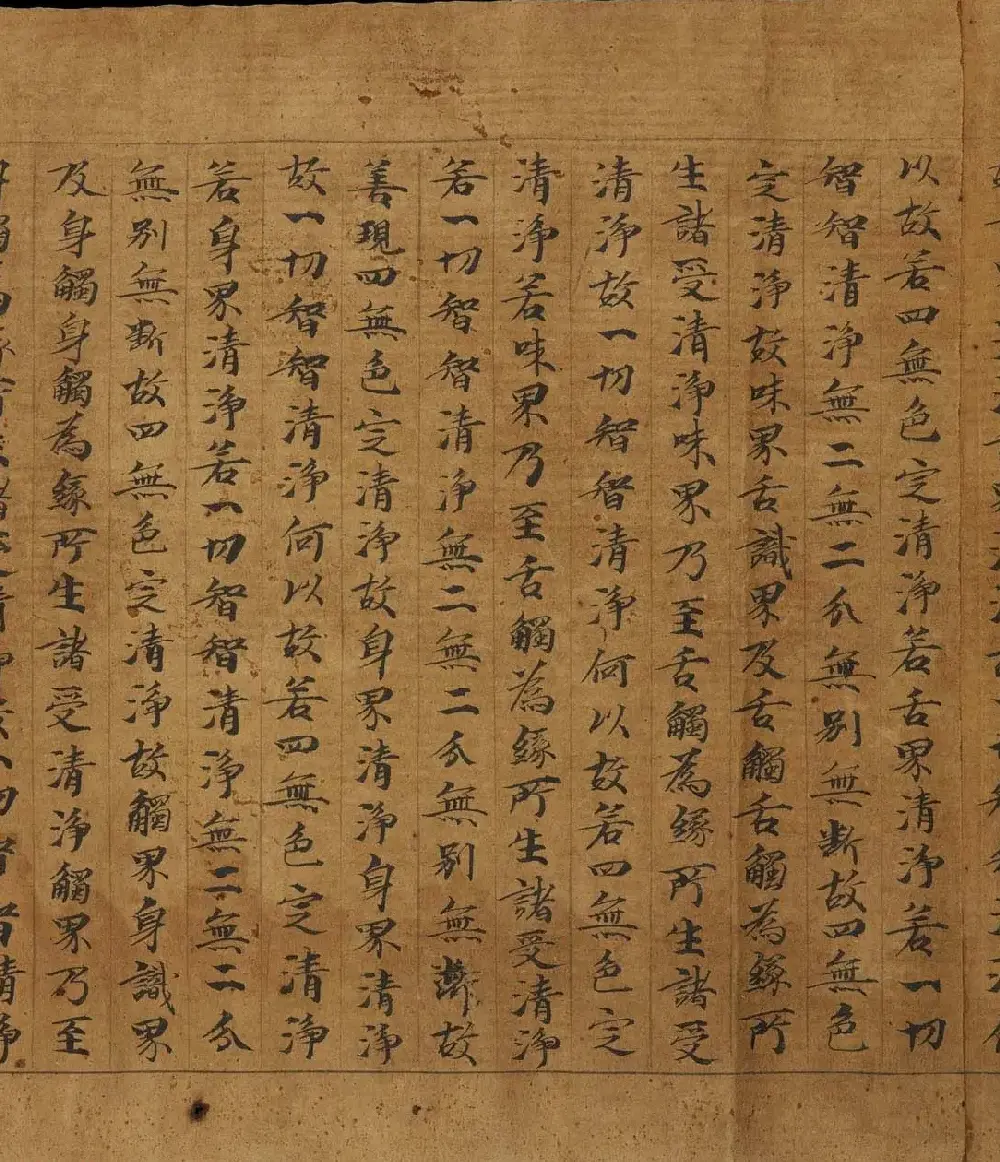 以故若四無色定清淨若舌界清淨若一切
智智清淨無二無二分無別無断故四無色
定清淨故味界舌識界及舌觸舌觸為緣所
生諸受清淨味界乃至舌觸為緣所生諸受
清淨故一切智智清淨何以故若四無色定
清淨若味界乃至舌觸為緣所生諸受清淨
若一切智智清淨無二無二分無別無斷故
善現四無色定清淨故身界清淨身界清淨
故一切智智清淨何以故若四無色定清淨
若身界清淨若一切智智清淨無二無二分
無別無断故四無色定清淨故觸界身識界
及身觸身觸為緣所生諸受清淨觸界乃至
身觸為緣所生諸受清淨故一切智智清淨